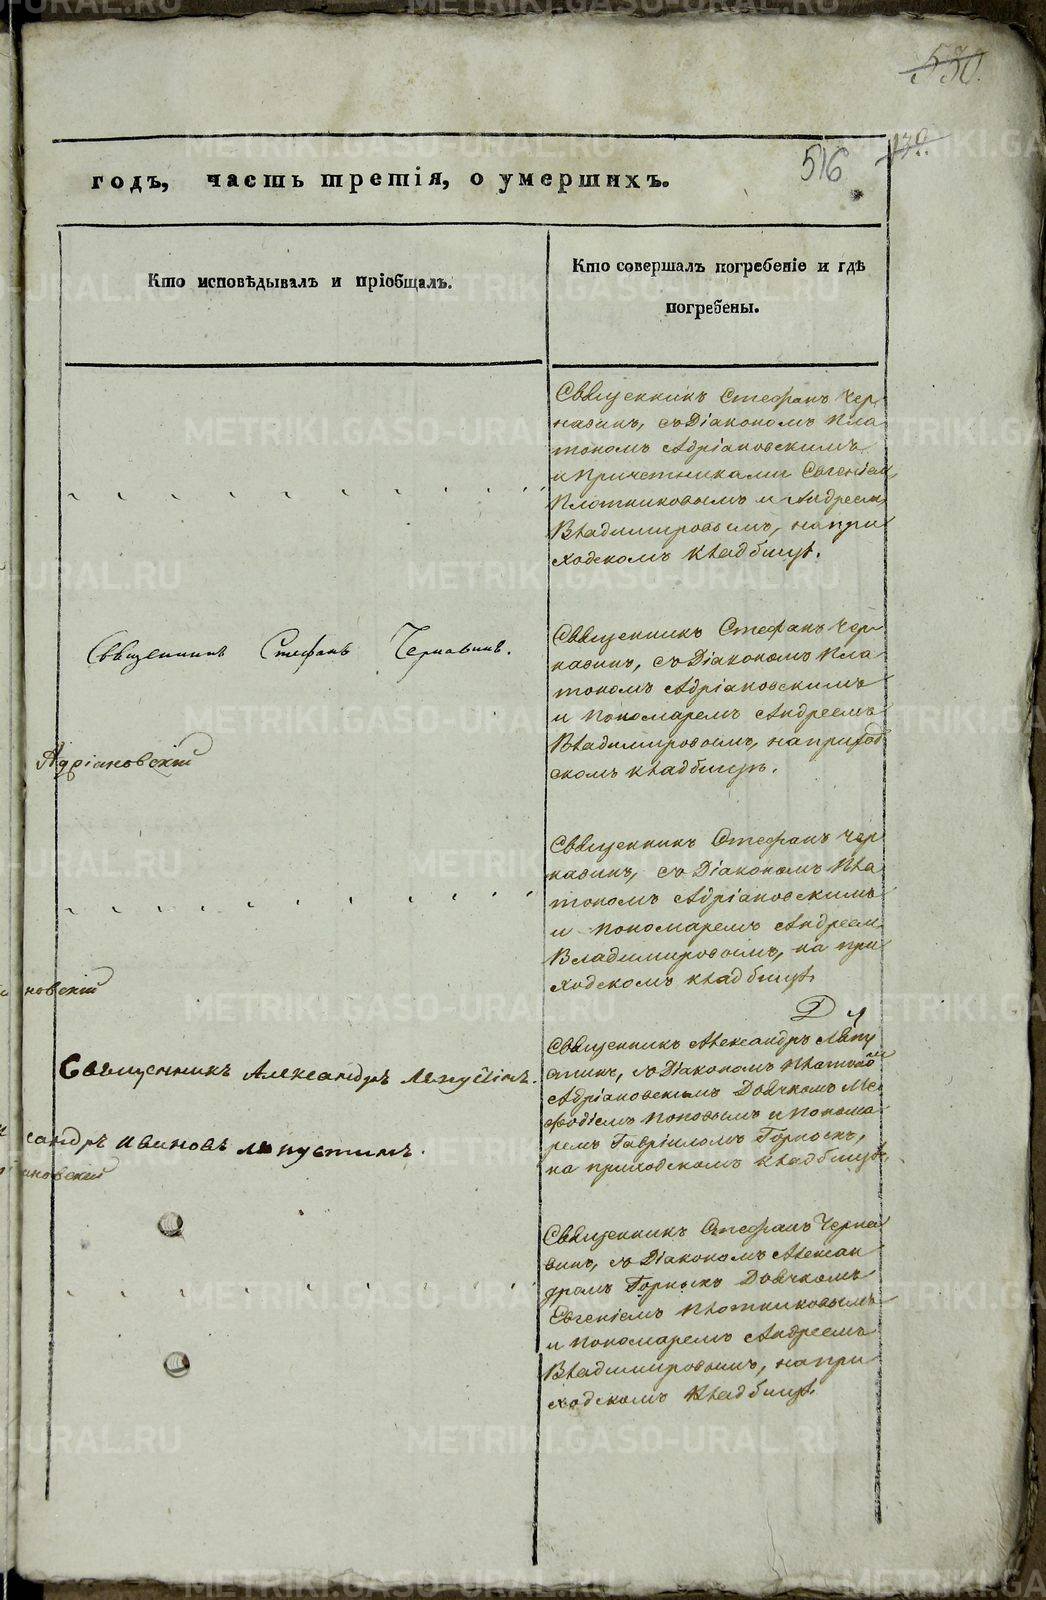 530.
430.
516
годъ, часть третія, о умершихъ.
Кто исповѣдывалъ и пріобщалъ.
Кто совершалъ погребеніе и гдѣ
погребены.
Священникъ Стефанъ Чер
навинъ, съ Діакономъ Пла
тономъ Адріановскимъ
и Причетниками Евгеніем
Плотниковымъ и Андреем
Владимировымъ, на при
ходскомъ кладбищѣ.
Священникъ Стефанъ Чернавинъ.
Священникъ Стефанъ Чер
навинъ, съ Діакономъ Пла
тономъ Адріановскимъ
и Пономаремъ Андреемъ
Владимировымъ, на приход
скомъ кладбищѣ.
Адріановскій
Священникъ Стефанъ Чер
навинъ, съ Діакономъ Пла
тономъ Адріановскимъ
и Пономаремъ Андреем
Владимировымъ, на при
ходскомъ кладбищѣ.
новскій
Священникъ Александръ Ляпустинъ.
Священникъ Александръ Ляпу
стинъ, съ Діакономъ Платоном
Адріановскимъ Дьячкомъ Ме
фодіемъ Поповымъ и Понома
ремъ Гавріиломъ Горныхъ,
на приходскомъ кладбищѣ.
сандръ Ивановъ Ляпустинъ.
ановский
Священникъ Стефанъ Черна
винъ, съ Діакономъ Алексан
дромъ Горныхъ Дьячкомъ
Евгеніемъ Плотниковымъ
и Пономаремъ Андреемъ
Владимировымъ, на при
ходскомъ кладбищѣ.
METRIKI.GASO-URAL.RU